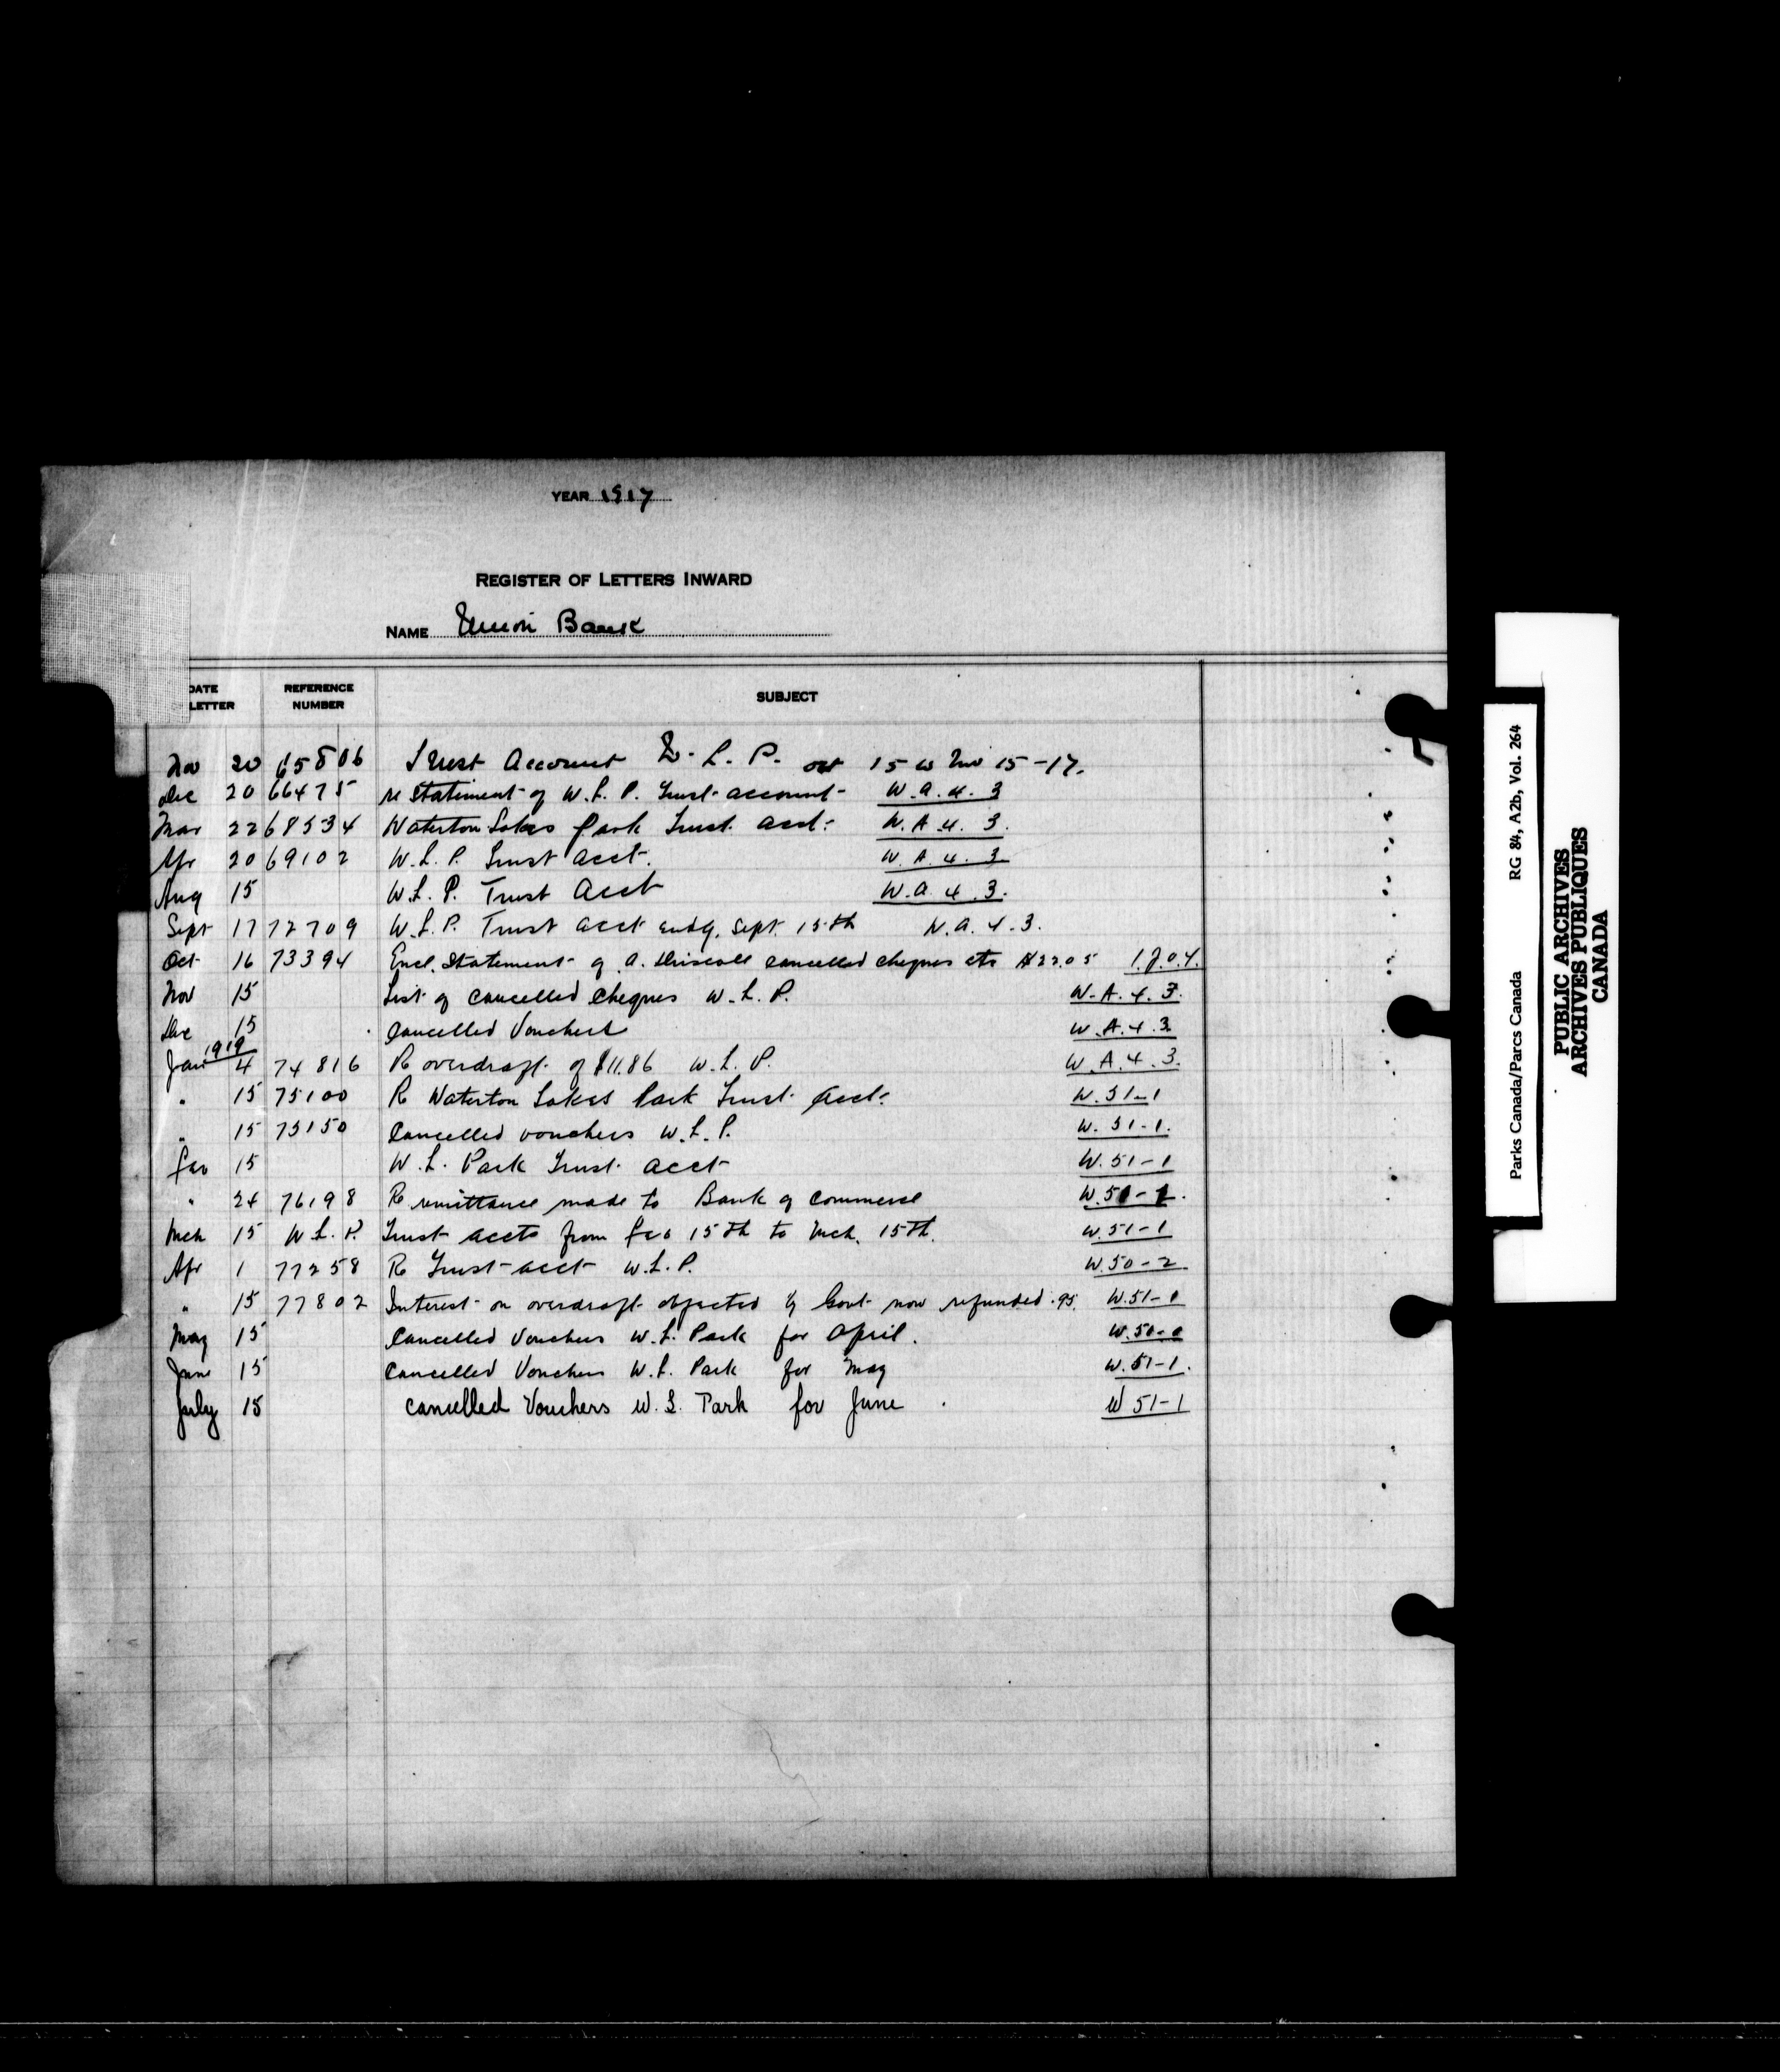 YEAR 1917
REGISTER OF LETTERS INWARD
NAME Union Bank
DATE LETTER REFERENCE NUMBER SUBJECT
Nov 20 65806 Trust Account W. L. P. Oct 15 to Nov 15-17.
Dec 20 66475 re Statement of W. L. P. Trust account W.A.4.3
Mar 22 68534 Waterton Lakes Park Trust Acct. W.A.4.3.
Apr 20 69102 W.L.P. Trust Acct. W.A.4.3
Aug 15 W.L.P. Trust Acct W.A.4.3.
Sept 17 72709 W.L.P. Trust Acct endg. Sept 15th W.A.4.3.
Oct 16 73394 Encl. Statement of A. Driscoll cancelled cheques etc $22.05
Nov 15 List of Cancelled Cheques W.L.P. W.A.4.3.
Dec 15 Cancelled Vouchers W.A.4.3
1919
Jan 4 74816 R overdraft of $11.86 W.L.P. W.A.4.3.
" 15 75100 R Waterton Lakes Park Trust Acct. W.51-1
" 15 75150 Cancelled vouchers W.L.P. W.51-1.
Feb 15 W.L. Park Trust Acct W.51-1
" 24 76198 R remittance made to Bank of Commerce W.51-1.
Mch 15 W.L.P. Trust Accts from Feb 15th to Mch. 15th. W.51-1
Apr 1 77258 R Trust acct W.L.P. W.50-2
" 15 77802 Interest on overdraft objected by Govt now refunded .95
May 15 Cancelled Vouchers W.L. Park for April.
June 15 Cancelled Vouchers W.L. Park for May W.51-1.
July 15 cancelled Vouchers W.L. Park for June. W 51-1
Parks Canada/Parcs Canada RG 84, A2b, Vol. 264
PUBLIC ARCHIVES
ARCHIVES PUBLIQUES
CANADA